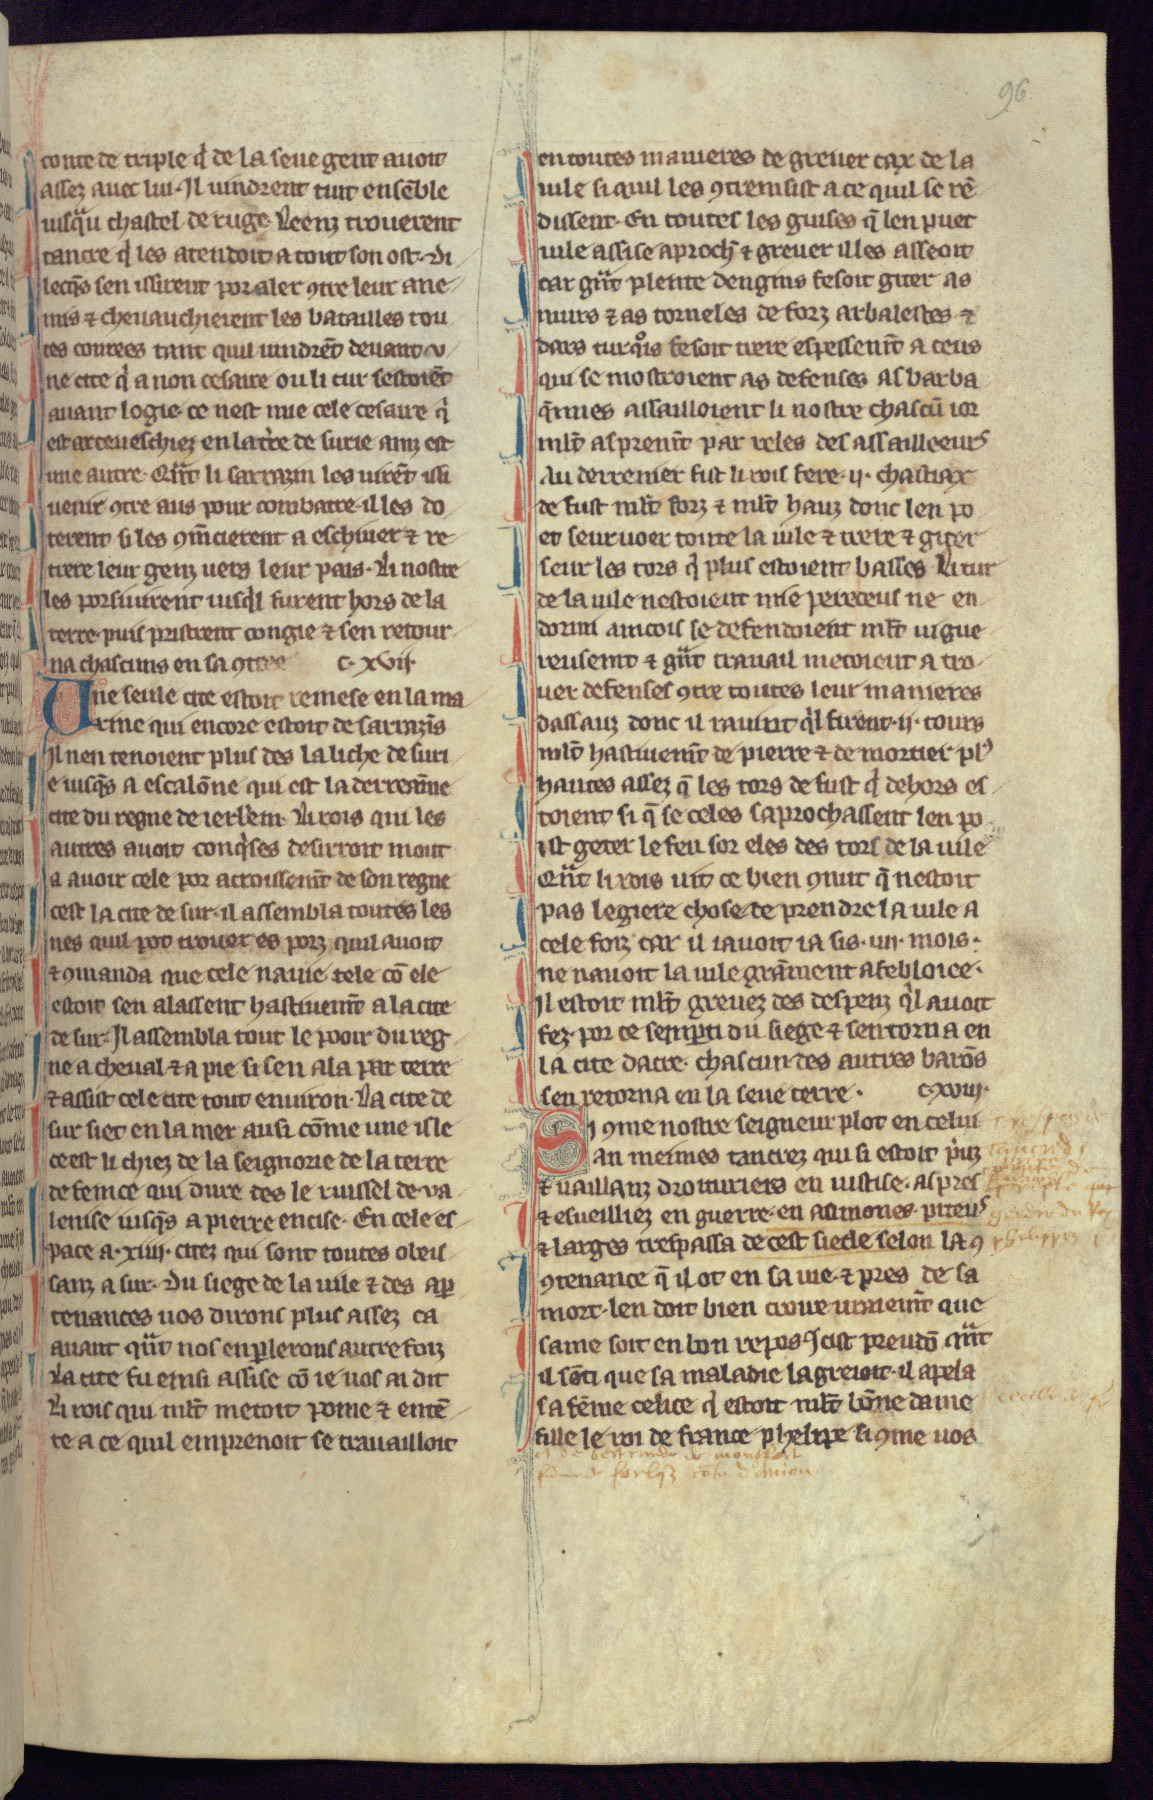 96
conte de triple q̇ de la seue gent auoit
assez auec lui. Il uindrent tuit ensẽble
iusqͣu chastel de ruge. Leenz trouerent
tancre q̇ les atendoit a tout son ost. Di
lecq̃s sen issirent por aler ꝯtre leur ane
mis ⁊ cheuauchierent les batailles tou
tes conrees tant quil uindrẽt deuant .v
ne cite q̇ a non cesaire ou li tur sestoiẽt
auant logie. ce nest mie cele cesaire q̇
est arceueschiez en la tr̃re de surie ainz est
une autre. Qͣnt li sarrazin les uirẽt issi
uenir ꝯtre aus pour combatre. il les do
terent si les ꝯm̃cierent a eschiuer ⁊ re
trere leur genz uers leur pais. Li nostre
les porsiuirent iusq̇l furent hors de la
terre. puis pristrent congie ⁊ sen retour
na chascuns en sa ꝯtree c. xvij.
Une seule cite estoit remese en la ma
rine qui encore estoit de sarrazĩs
Il nen tenoient plus des la liche de suri
e iusq̃s a escalõne qui est la derreniñe
cite du regne de ierl'em. Li rois qui les
autres auoit conq̇ses desirroit mout
a auoir cele por acroissem̃t de son regne
cest la cite de sur. il assembla toutes les
nes quil pot trouer es porz quil auoit
⁊ ꝯmanda que cele nauie tele cõ ele
estoit sen alassent hastiuem̃t a la cite
de sur. Il assembla tout le pooir du reg
ne a cheual ⁊ a pie si sen ala par terre
⁊ assist cele cite tout enuiron. La cite de
sur siet en la mer ausi cõme une isle
ce est li chiez de la seignorie de la terre
de fenice qui dure des le ruissel de va
lenise iusq̃s a pierre encise. En cele es
pace a .xiiij. citez qui sont toutes obeis
sanz a sur. Du siege de la uile ⁊ des ap̱
tenances uos dirons plus assez ca
auant qͣnt nos en p̱lerons autre foiz
La cite fu einsi assise cõ ie uos ai dit
Li rois qui ml̃t metoit peine ⁊ entẽ
te a ce quil emprenoit se trauailloit
en toutes manieres de greuer cax de la
uile si quil les ꝯtreinsist a ce quil se rẽ
dissent. En toutes les guises q̃ len puet
uile assise aproch̃ ⁊ greuer il les asseoit
car gͣnt plente dengins fesoit giter as
murs ⁊ as torneles de forz arbalestes ⁊
dars turqͦis fesoit trere espessem̃t a ceus
qui se mostroient as defenses as barba
q̃nnes assailloient li nostre chascũ ior
ml̃t asprem̃t par reles des assailleeurs
Au derrenier fist li rois fere .ij. chastiax
de fust ml̃t forz ⁊ ml̃t hauz donc len po
et seurueer toute la uile ⁊ trere ⁊ giter
seur les tors q̇ plus estoient basses Li tur
de la uile nestoient mie pereceus ne en
dormi aincois se defendoient ml̃t uigue
reusemt ⁊ gͣnt trauail metoient a tro
uer defenses ꝯtre toutes leur manieres
dassauz donc il rauint q̇l firent .ij. tours
ml̃t hastiuem̃t de pierre ⁊ de mortier plꝰ
hautes assez q̃ les tors de fust q̇ dehors es
toient si q̃ se celes saprochassent len po
ist geter le feu sor eles des tors de la uile
Qͣnt li rois uit ce bien ꝯnut q̃ nestoit
pas legiere chose de prendre la uile a
cele foiz car il iauoit ia sis .iiij. mois.
ne nauoit la uile grãment afebloiee.
Il estoit ml̃t greuez des despenz q̇l auoit
fez. por ce sempti du siege ⁊ sen torna en
la cite dacre. chascun des autres barõs
sen retorna en la seue terre. c. xviij.
Si ꝯme nostre seigneur plot en celui
an meimes tancrez qui si estoit p̃uz
⁊ uaillanz droituriers en iustise. aspres
⁊ esueilliez en guerre. en aumones. piteuˢ
⁊ larges trespassa de cest siecle selon la ꝯ
ꝯtenance q̃ il ot en sa uie. ⁊ pres de sa
mort. len doit bien croire uraiem̃t que
same soit en bon repos. Cist preudõ qͣnt
il sẽti que sa maladie lagreioit. il apela
sa fẽme celice q̇ estoit ml̃t bõne dame
fille le roi de france phelipe si ꝯme uos